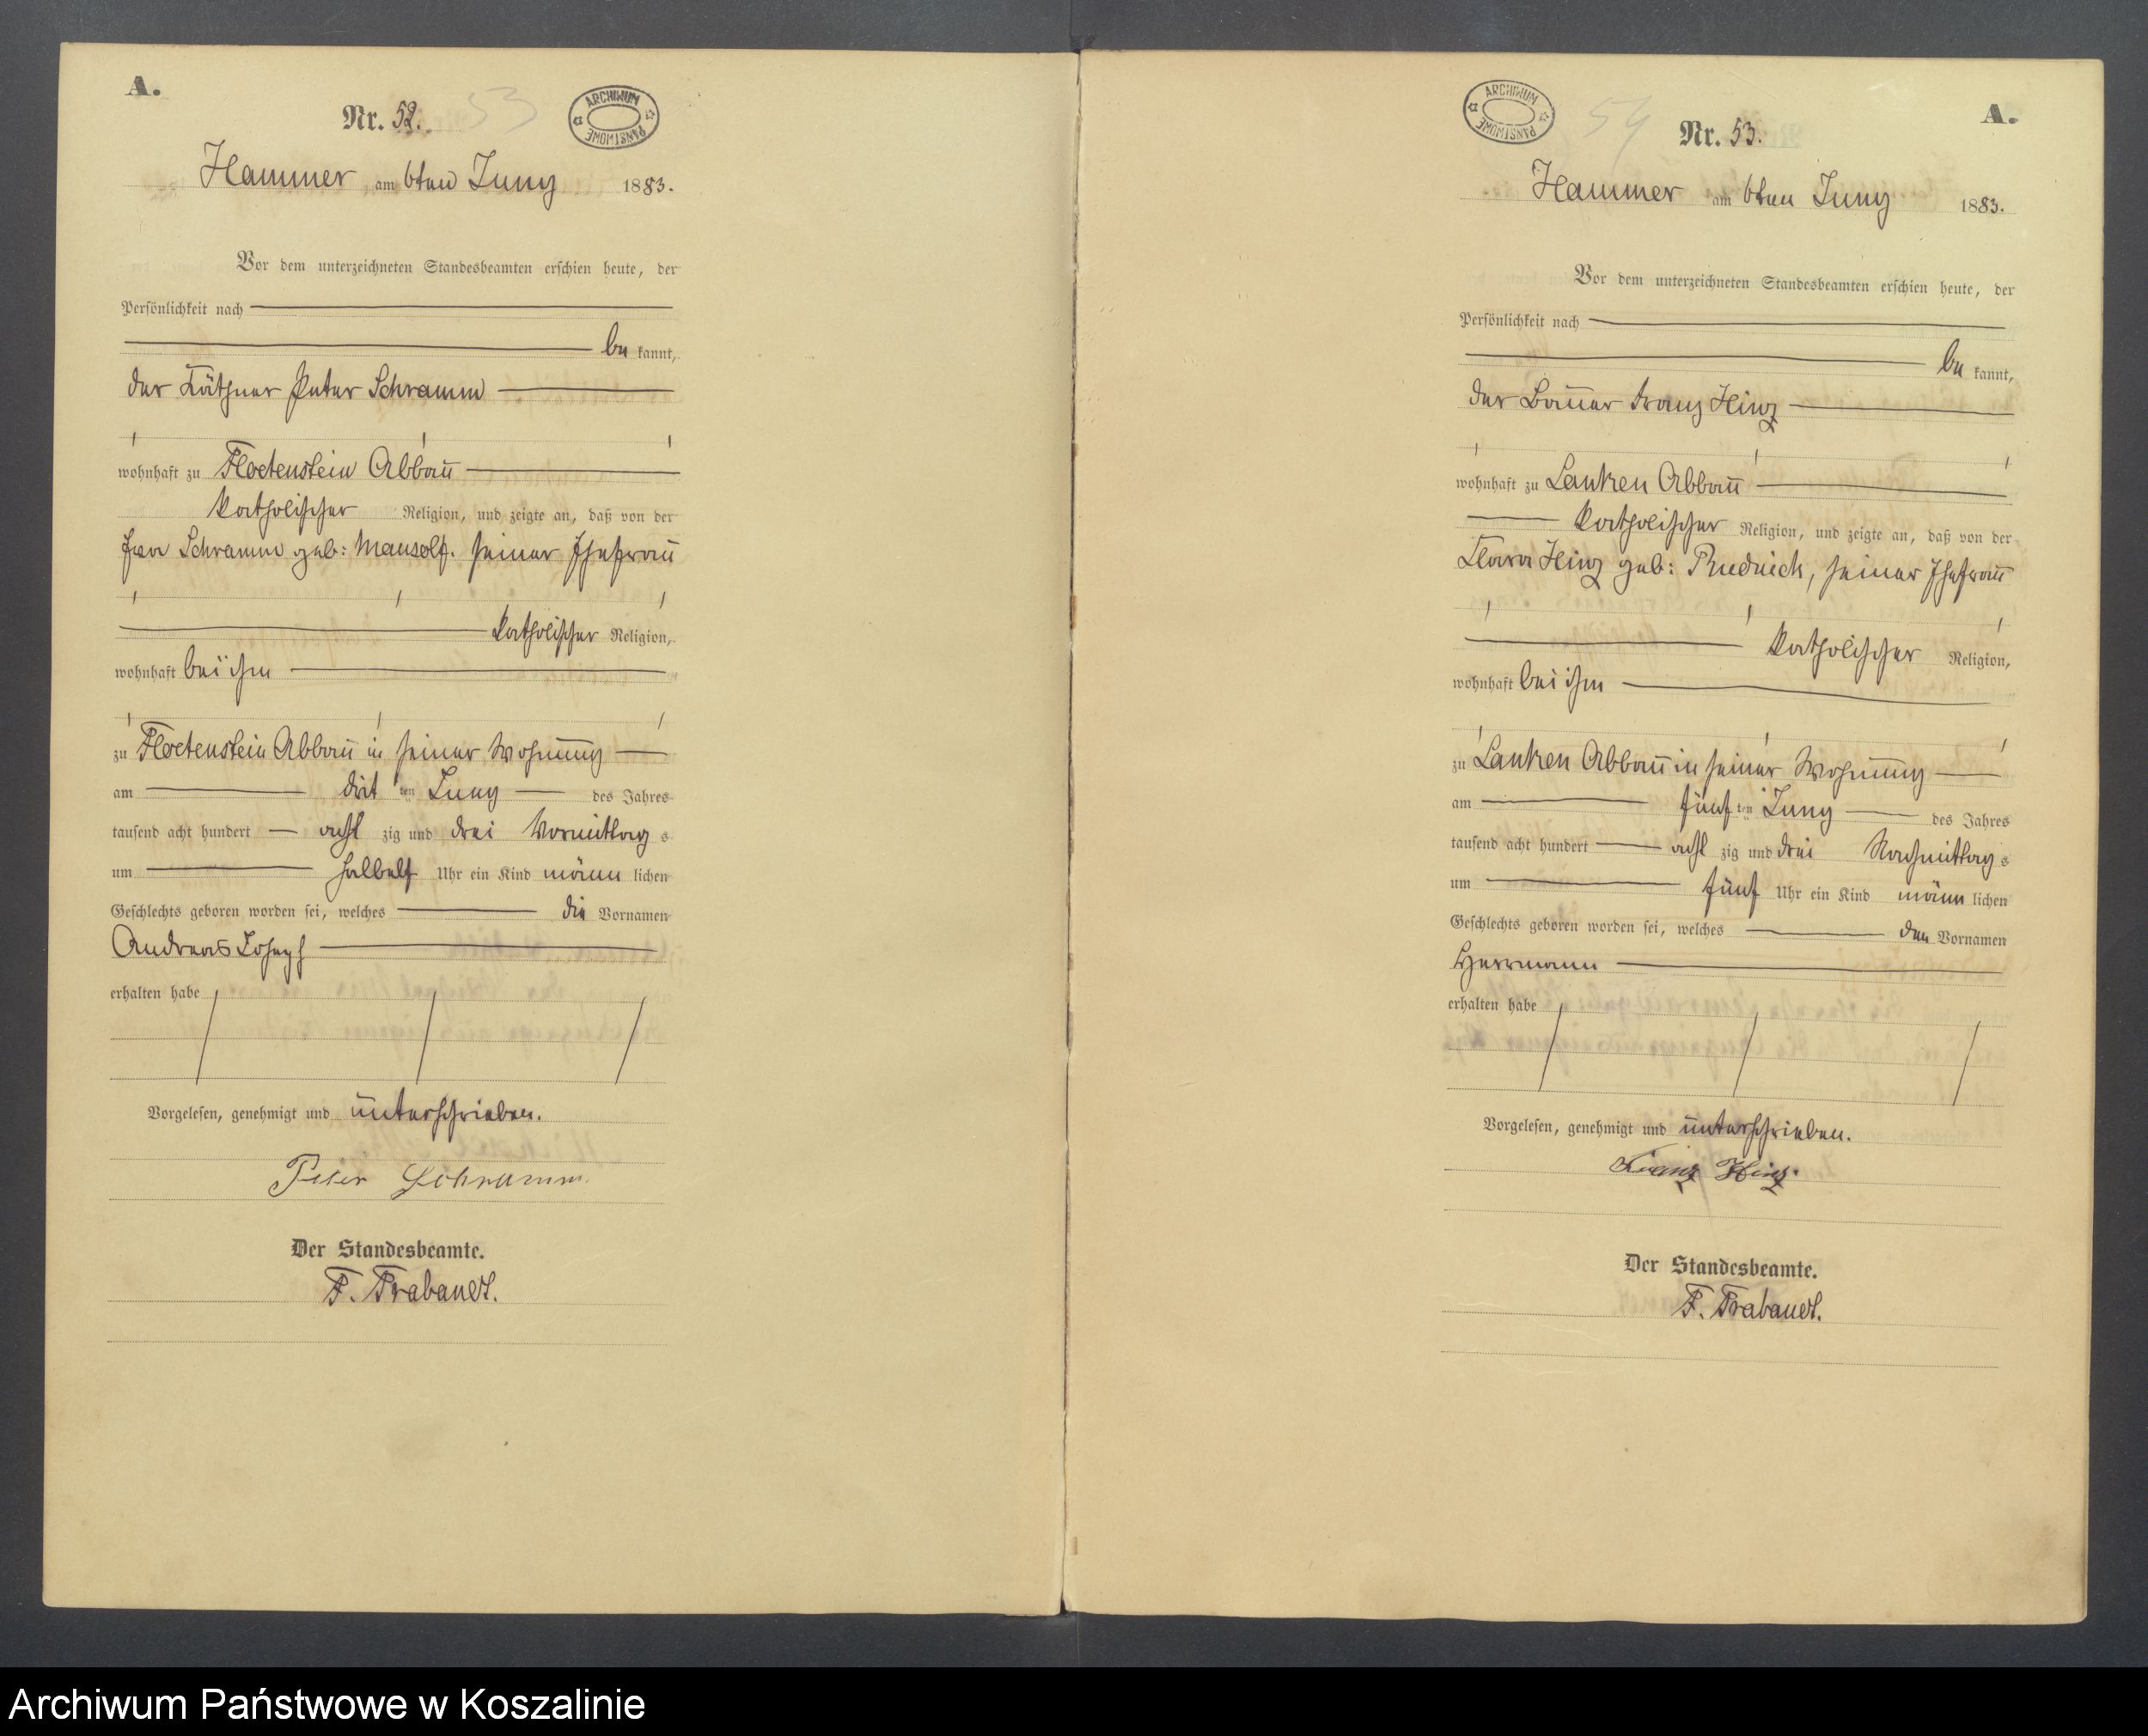 A.
Nr. 52.
53
ARCHIWUM PAŃSTWOWE
Hammer am 6ten Juny 1883.
Vor dem unterzeichneten Standesbeamten erschien heute, der
Persönlichkeit nach
be kannt,
der Käthner Peter Schramm
wohnhaft zu Floetenstein Abbau
katholischer Religion, und zeigte an, daß von der
Schramm geb: Mausolf. seiner Ehefrau
katholischer Religion,
wohnhaft bei ihm
zu Floetenstein Abbau in seiner Wohnung
am ten Juny des Jahres
tausend acht hundert acht zig und drei Vormittag s
um halbelf Uhr ein Kind männ lichen
Geschlechts geboren worden sei, welches die Vornamen
Andreas Joseph
erhalten habe
Vorgelesen, genehmigt und unterschrieben.
Peter Schramm.
Der Standesbeamte.
F. Trabandt.
ARCHIWUM PAŃSTWOWE
54
A.
Nr. 53.
Hammer am 6ten Juny 1883.
Vor dem unterzeichneten Standesbeamten erschien heute, der
Persönlichkeit nach
be kannt,
der Bauer Franz Hinz
wohnhaft zu Lanken Abbau
katholischer Religion, und zeigte an, daß von der
Clara Hinz geb: Rudnick, seiner Ehefrau
katholischer Religion,
wohnhaft bei ihm
zu Lanken Abbau in seiner Wohnung
am fünf ten Juny des Jahres
tausend acht hundert acht zig und drei Nachmittag s
um fünf Uhr ein Kind männ lichen
Geschlechts geboren worden sei, welches den Vornamen
Herrmann
erhalten habe
Vorgelesen, genehmigt und unterschrieben.
Franz Hinz.
Der Standesbeamte.
F. Trabandt.
Archiwum Państwowe w Koszalinie